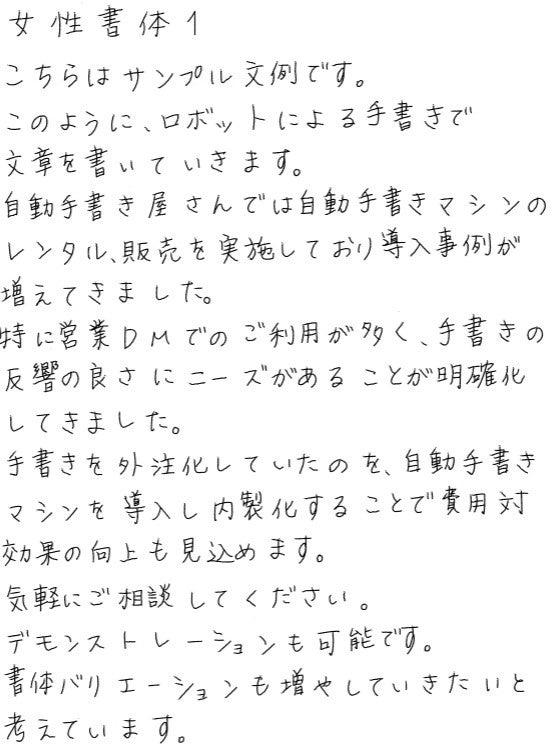 女性書体1
こちらはサンプル文例です。
このように、ロボットによる手書きで
文章を書いていきます。
自動手書き屋さんでは自動手書きマシンの
レンタル、販売を実施しており導入事例が
増えてきました。
特に営業DMでのご利用が多く、手書きの
反響の良さにニーズがあることが明確化
してきました。
手書きを外注化していたのを、自動手書き
マシンを導入し内製化することで費用対
効果の向上も見込めます。
気軽にご相談してください。
デモンストレーションも可能です。
書体バリエーションも増やしていきたいと
考えています。